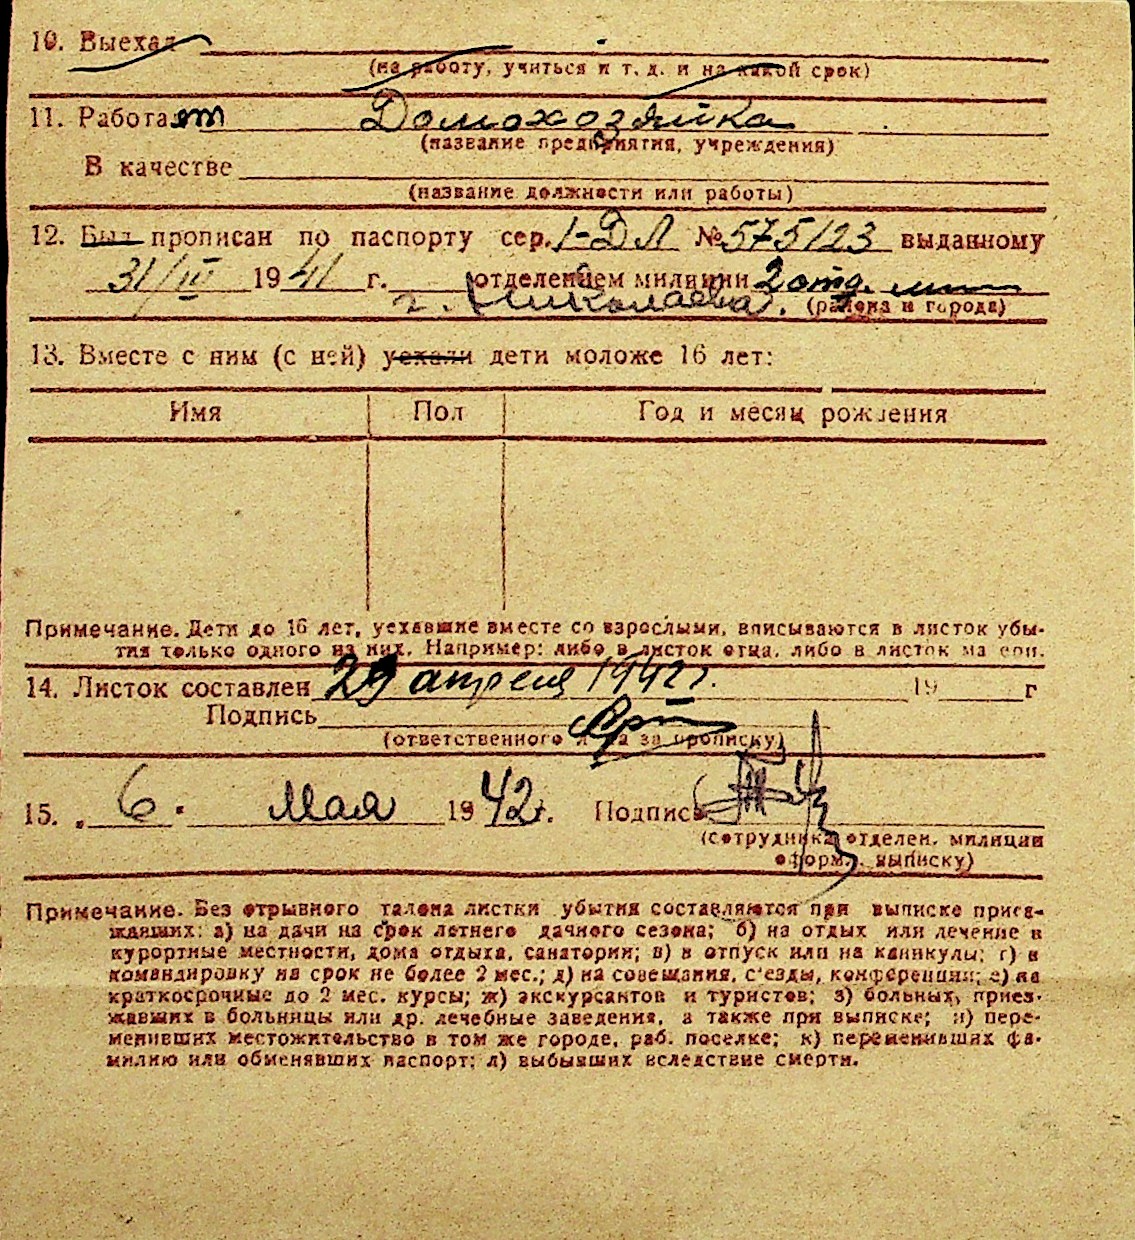 10. Выехал
(на работу, учиться и т. д. и на какой срок)
11. Работает Домохозяйка
(название предприятия, учреждения)
В качестве
(название должности или работы)
12. Был прописан по паспорту сер. 1-ДЛ № 575123 выданному
31/III 1941 г. отделением милиции 2 отд. мил
г. Николаева. (района и города)
13. Вместе с ним (с ней) уехали дети моложе 16 лет:
Имя Пол Год и месяц рождения
Примечание. Дети до 16 лет, уехавшие вместе со взрослыми, вписываются в листок убы-
тия только одного из них. Например: либо в листок отца, либо в листок матери.
14. Листок составлен 29 апреля 1942 г. 19 г
Подпись
(ответственного лица за прописку)
15. „6. Мая 1942 г. Подпись
(сотрудника отделен. милиции
оформ. выписку)
Примечание. Без отрывного талона листки убытия составляются при выписке приез-
жавших: а) на дачи на срок летнего дачного сезона; б) на отдых или лечение в
курортные местности, дома отдыха, санатории; в) в отпуск или на каникулы; г) в
командировку на срок не более 2 мес.; д) на совещания, с'езды, конференции; е) на
краткосрочные до 2 мес. курсы; ж) экскурсантов и туристов; з) больных, приез-
жавших в больницы или др. лечебные заведения, а также при выписке; и) пере-
менивших местожительство в том же городе, раб. поселке; к) переменивших фа-
милию или обменявших паспорт; л) выбывших вследствие смерти.